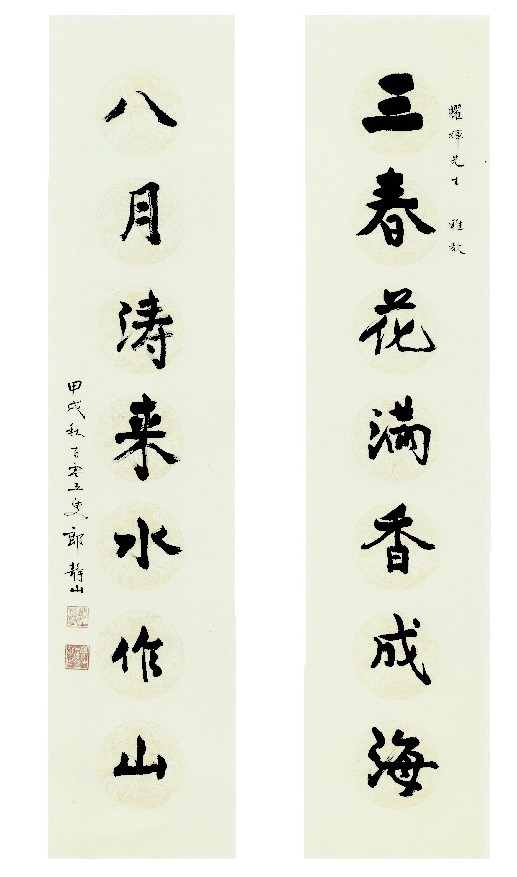 耀輝先生 雅教
三春花满香成海
八月涛来水作山
甲戌秋百零五叟郎靜山